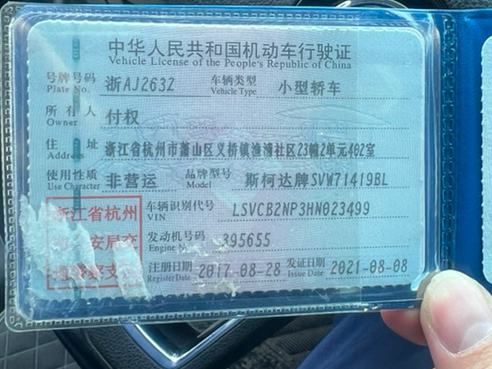 中华人民共和国机动车行驶证
Vehicle License of the People's Republic of China
号牌号码 浙AJ263Z 车辆类型 小型轿车
Plate No. Vehicle Type
所有人 付权
Owner
住址 浙江省杭州市萧山区义桥镇渔浦社区23幢2单元402室
Address
使用性质 非营运 品牌型号 斯柯达牌SVW71419BL
Use Character Model
浙江省杭州 车辆识别代号 LSVCB2NP3HN023499
VIN
安局交 发动机号码 395655
Engine
支 注册日期 2017-08-28 发证日期 2021-08-08
Register Date Issue Date